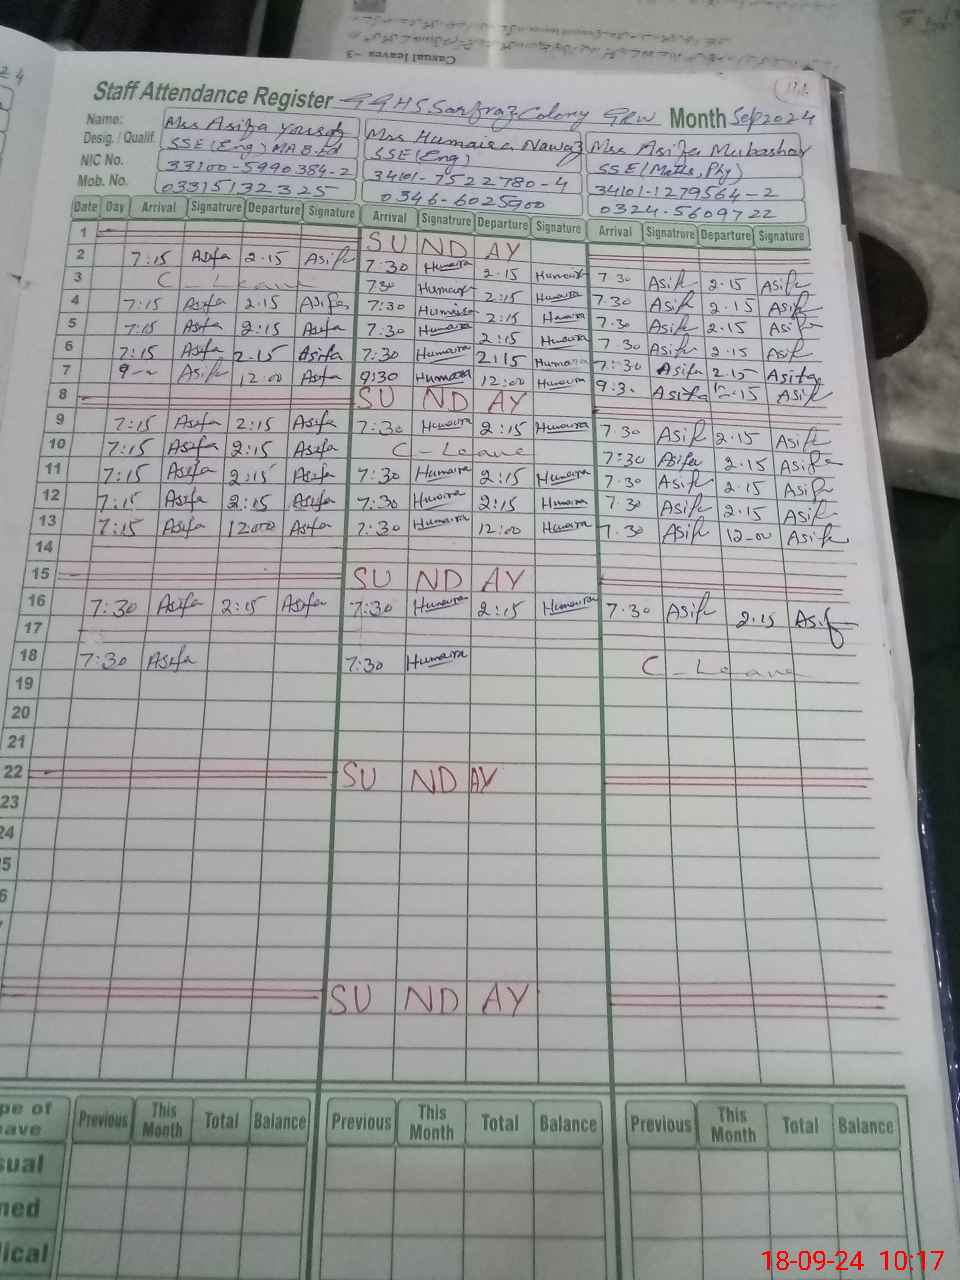 Casual leaves -3
Staff Attendance Register GGHS Sarfraz Colony GRW Month Sep 2024
Name: Mrs Asifa Yousaf Mrs Humaira Nawaz Mrs Asifa Mubashar
Desig. / Qualif. SSE (Eng) MA B.Ed SSE (Eng) SSE (Maths, Phy)
NIC No. 33100-5990384-2 34101-7522780-4 34101-1279564-2
Mob. No. 03315132325 0346-6025900 0324-5609722
Date Day Arrival Signatrure Departure Signature Arrival Signatrure Departure Signature Arrival Signatrure Departure Signature
1 SU ND AY
2 7:15 Asifa 2.15 Asifa 7:30 Humaira 2.15 Humaira 7 30 Asifa 2.15 Asifa
3 C - Leave 7:30 Humaira 2:15 Humaira 7.30 Asifa 2.15 Asifa
4 7:15 Asifa 2.15 Asifa 7:30 Humaira 2:15 Humaira 7.30 Asifa 2.15 Asifa
5 7:15 Asifa 2:15 Asifa 7:30 Humaira 2:15 Humaira 7.30 Asifa 2.15 Asifa
6 7:15 Asifa 2.15 Asifa 7:30 Humaira 2:15 Humaira 7:30 Asifa 2.15 Asifa
7 9-- Asifa 12.00 Asifa 9:30 Humaira 12:00 Humaira 9.30 Asifa Asifa
8 SU ND AY
9 7:15 Asifa 2:15 Asifa 7:30 Humaira 2:15 Humaira 7.30 Asifa 2.15 Asifa
10 7:15 Asifa 2:15 Asifa C - Leave 7:30 Asifa 2.15 Asifa
11 7:15 Asifa 2:15 Asifa 7:30 Humaira 2:15 Humaira 7.30 Asifa 2.15 Asifa
12 7:15 Asifa 2:15 Asifa 7:30 Humaira 2:15 Humaira 7.30 Asifa 2.15 Asifa
13 7:15 Asifa 12:00 Asifa 7:30 Humaira 12:00 Humaira 7.30 Asifa 12-00 Asifa
14
15 SU ND AY
16 7:30 Asifa 2:15 Asifa 7:30 Humaira 2:15 Humaira 7.30 Asifa 2.15 Asifa
17
18 7:30 Asifa 7:30 Humaira C - Leave
19
20
21
22 SU ND AY
23
24
5
6
SU ND AY
pe of Previous This Month Total Balance Previous This Month Total Balance Previous This Month Total Balance
eave
sual
ned
ical
18-09-24 10:17